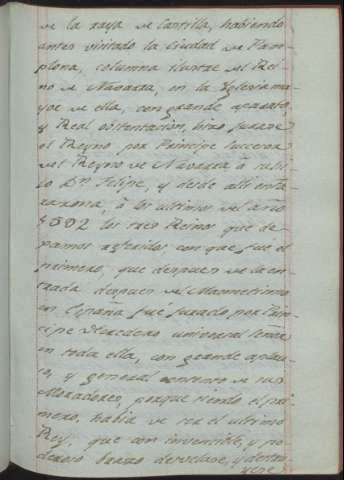 de la raya de Castilla, habiendo
antes visitado la Ciudad de Pam-
plona, columna ilustre del Rei-
no de Navarra, en la Yglesia ma-
yor de ella, con grande aparato,
y Real obstentación, hizo jurase
el Reyno por Principe succesor
del Reyno de Navarra à su hi-
jo Dn. Felipe, y desde alli entra-
, à los ultimos del año
1592 los tres Reinos que de-
jamos referidos con que fue el
primero, que despues de la en-
trada despues del Maometismo
en España fué jurado por Prin-
cipe Heredero universal Señor
en toda ella, con grande aplau-
so, y general contento de sus
Moradores, porque siendo el pri-
mero, habia de ser el ultimo
Rey, que con invencible, y po-
deroso brazo desvelase, y destru-
yese